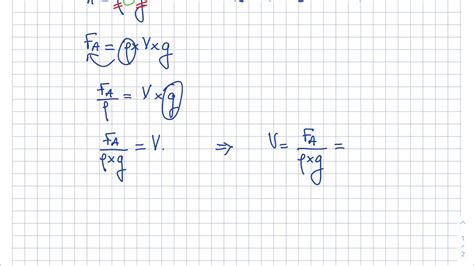 F_A = ρ x V x g
F_A / ρ = V x g
F_A / (ρ x g) = V. ⇒ V = F_A / (ρ x g) =
1
2